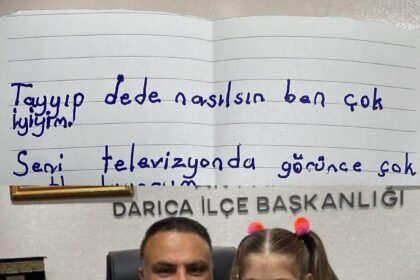 Tayyıp dede nasılsın ben çok
iyiyim.
Seni televizyonda görünce çok
DARICA İLÇE BAŞKANLIĞI